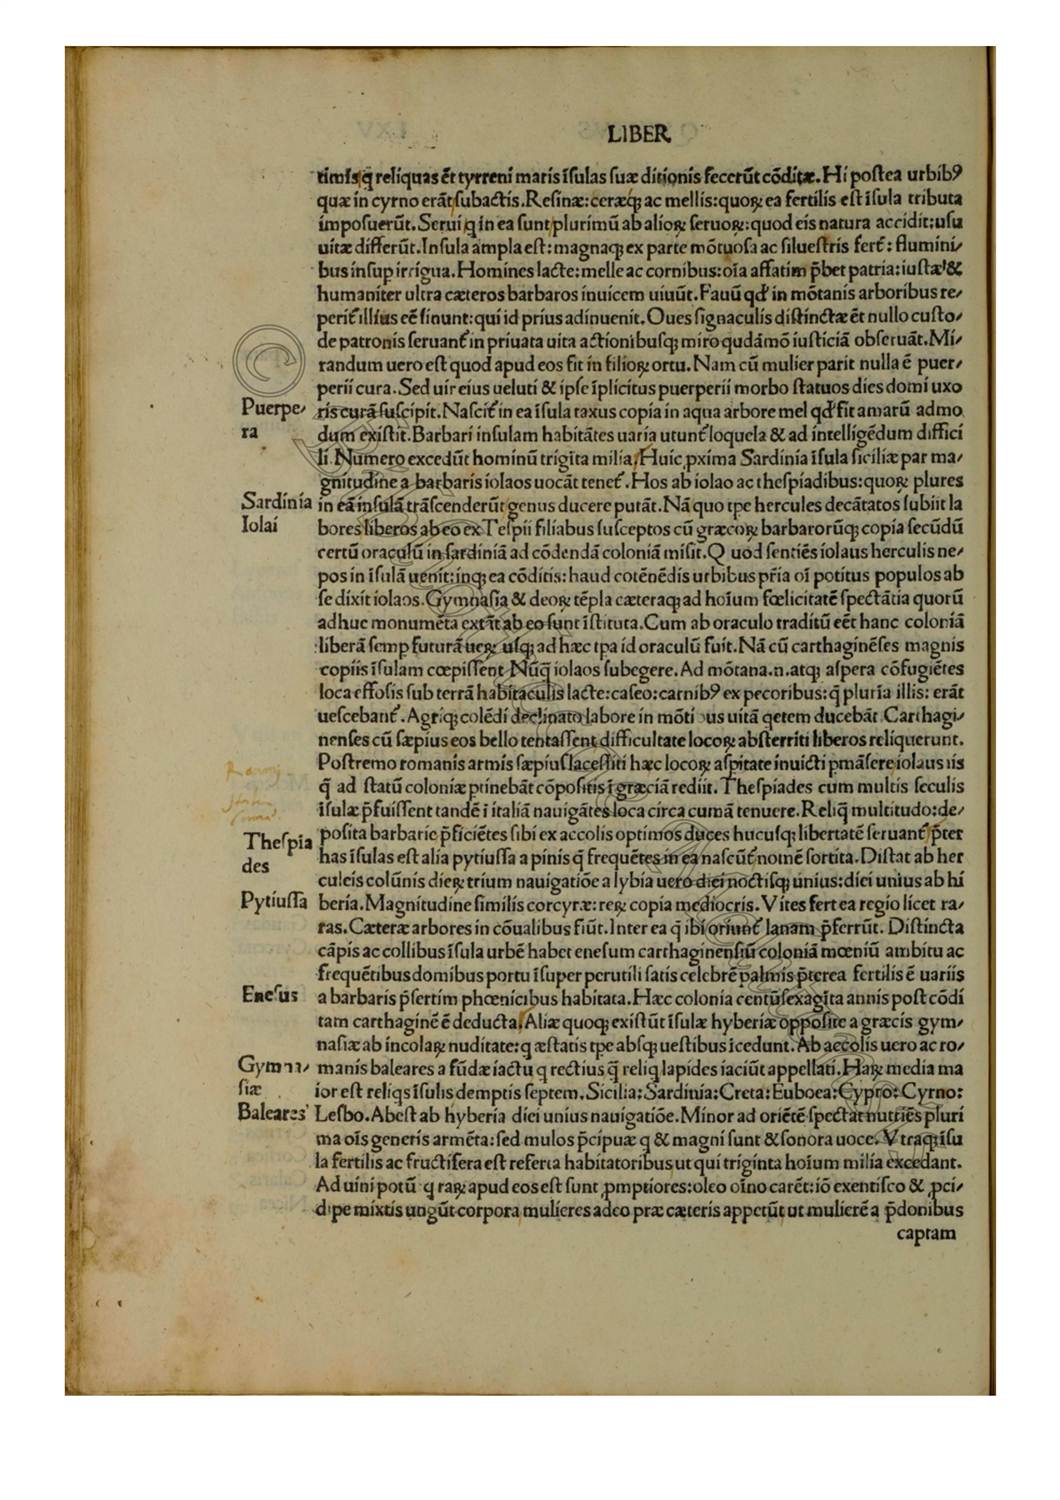 LIBER
timis q̄ reliquas ēt tyrreni maris īsulas suæ ditionis fecerūt cōditæ. Hi postea urbibꝰ
quæ in cyrno erāt subactis. Resinæ: ceræq; ac mellis: quoꝝ ea fertilis est īsula tributa
imposuerūt. Serui q in ea sunt plurimū ab alioꝝ seruoꝝ: quod eis natura accidit: usu
uitæ differūt. Insula ampla est: magnaq; ex parte mōtuosa ac siluestris fert᷑: flumini/
bus insup irrigua. Homines lacte: melle ac cornibus: oīa affatim p̄bet patria: iustæ &
humaniter ultra cæteros barbaros inuicem uiuūt. Fauū qđ in mōtanis arboribus re/
perit᷑ illius eē sinunt: qui id prius adinuenit. Oues signaculis distinctæ ēt nullo custo/
de patronis seruant᷑ in priuata uita actionibusq; miro qudāmō iusticiā obseruāt. Mi/
randum uero est quod apud eos fit in filioꝝ ortu. Nam cū mulier parit nulla ē puer/
perii cura. Sed uir eius ueluti & ipse īplicitus puerperii morbo statuos dies domi uxo
Puerpe/ ris curā suscipit. Nascit᷑ in ea īsula taxus copia in aqua arbore mel qđ fit amarū admo
ra dum existit. Barbari insulam habitātes uaria utunt᷑ loquela & ad intelligēdum diffici
li. Numero excedūt hominū trigīta milia. Huic ꝓxima Sardinia īsula siciliæ par ma/
gnitudine a barbaris iolaos uocāt tenet᷑. Hos ab iolao ac thespiadibus: quoꝝ plures
Sardinia in eā insulā trāscenderūt genus ducere putāt. Nā quo tpe hercules decātatos subiit la
Iolai bores liberos ab eo ex Tespii filiabus susceptos cū græcoꝝ barbarorūq; copia secūdū
certū oraculū in sardiniā ad cōdendā coloniā misit. Quod sentiēs iolaus herculis ne/
pos in īsulā uenit: inq; ea cōditis: haud cotēnēdis urbibus pr̄ia oī potitus populos ab
se dixit iolaos. Gymnasia & deoꝝ tēpla cæteraq; ad hoīum fœlicitatē spectātia quorū
adhuc monumēta extāt ab eo sunt īstituta. Cum ab oraculo traditū eēt hanc coloniā
liberā semp futurā ueꝝ usq; ad hæc tpa id oraculū fuit. Nā cū carthaginēses magnis
copiis īsulam cœpissent Nūq̄ iolaos subegere. Ad mōtana.n.atq; aspera cōfugiētes
loca effosis sub terrā habitaculis lacte: caseo: carnibꝰ ex pecoribus: q̄ pluria illis: erāt
uescebant᷑. Agriq; colēdi declinato labore in mōtibus uitā qetem ducebāt. Carthagi/
nenses cū sæpius eos bello tentassent difficultate locoꝝ absterriti liberos reliquerunt.
Postremo romanis armis sæpius lacessiti hæc locoꝝ aspitate inuicti pmāsere iolaus iis
q̄ ad statū coloniæ ptinebāt cōpositis ī græciā rediit. Thespiades cum multis seculis
īsulæ p̄fuissent tandē ī italiā nauigātes loca circa cumā tenuere. Reliq̄ multitudo: de/
Thespia posita barbarie p̄ficiētes sibi ex accolis optimos duces hucusq; libertatē seruant᷑ p̄ter
des has īsulas est alia pytiussa a pinis q̄ frequētes in ea nascūt᷑ nomē sortita. Distat ab her
culeis colūnis dieꝝ trium nauigatiōe a lybia uero diei noctisq; unius: diei unius ab hi
Pytiussa beria. Magnitudine similis corcyræ: reꝝ copia mediocris. Vites fert ea regio licet ra/
ras. Cæteræ arbores in cōualibus fiūt. Inter ea q̄ ibi oriunt᷑ lanam p̄ferrūt. Distincta
cāpis ac collibus īsula urbē habet enesum carthaginensiū coloniā mœniū ambitu ac
frequētibus domibus portu īsuper perutili satis celebrē palmis p̄terea fertilis ē uariis
Enesus a barbaris p̄sertim phœnicibus habitata. Hæc colonia centūsexagīta annis post cōdi
tam carthaginē ē deducta. Aliæ quoq; existūt īsulæ hyberiæ opposite a græcis gym/
nasiæ ab incolaꝝ nuditate: q æstatis tpe absq; uestibus īcedunt. Ab accolis uero ac ro/
Gymna/ manis baleares a fūdæ iactu q rectius q̄ reliq lapides iaciūt appellati. Haꝝ media ma
siæ ior est reliqs īsulis demptis septem. Sicilia: Sardinia: Creta: Euboea: Cypro: Cyrno:
Baleares Lesbo. Abest ab hyberia diei unius nauigatiōe. Minor ad oriētē spectat nutriēs pluri
ma oīs generis armēta: sed mulos p̄cipuæ q & magni sunt & sonora uoce. Vtraq; īsu
la fertilis ac fructifera est referta habitatoribus ut qui triginta hoīum milia excedant.
Ad uini potū q raꝝ apud eos est sunt ꝓmptiores: oleo oīno carēt: iō exentisco & ꝓci/
dipe mixtis ungūt corpora mulieres adeo præ cæteris appetūt ut mulierē a p̄donibus
captam